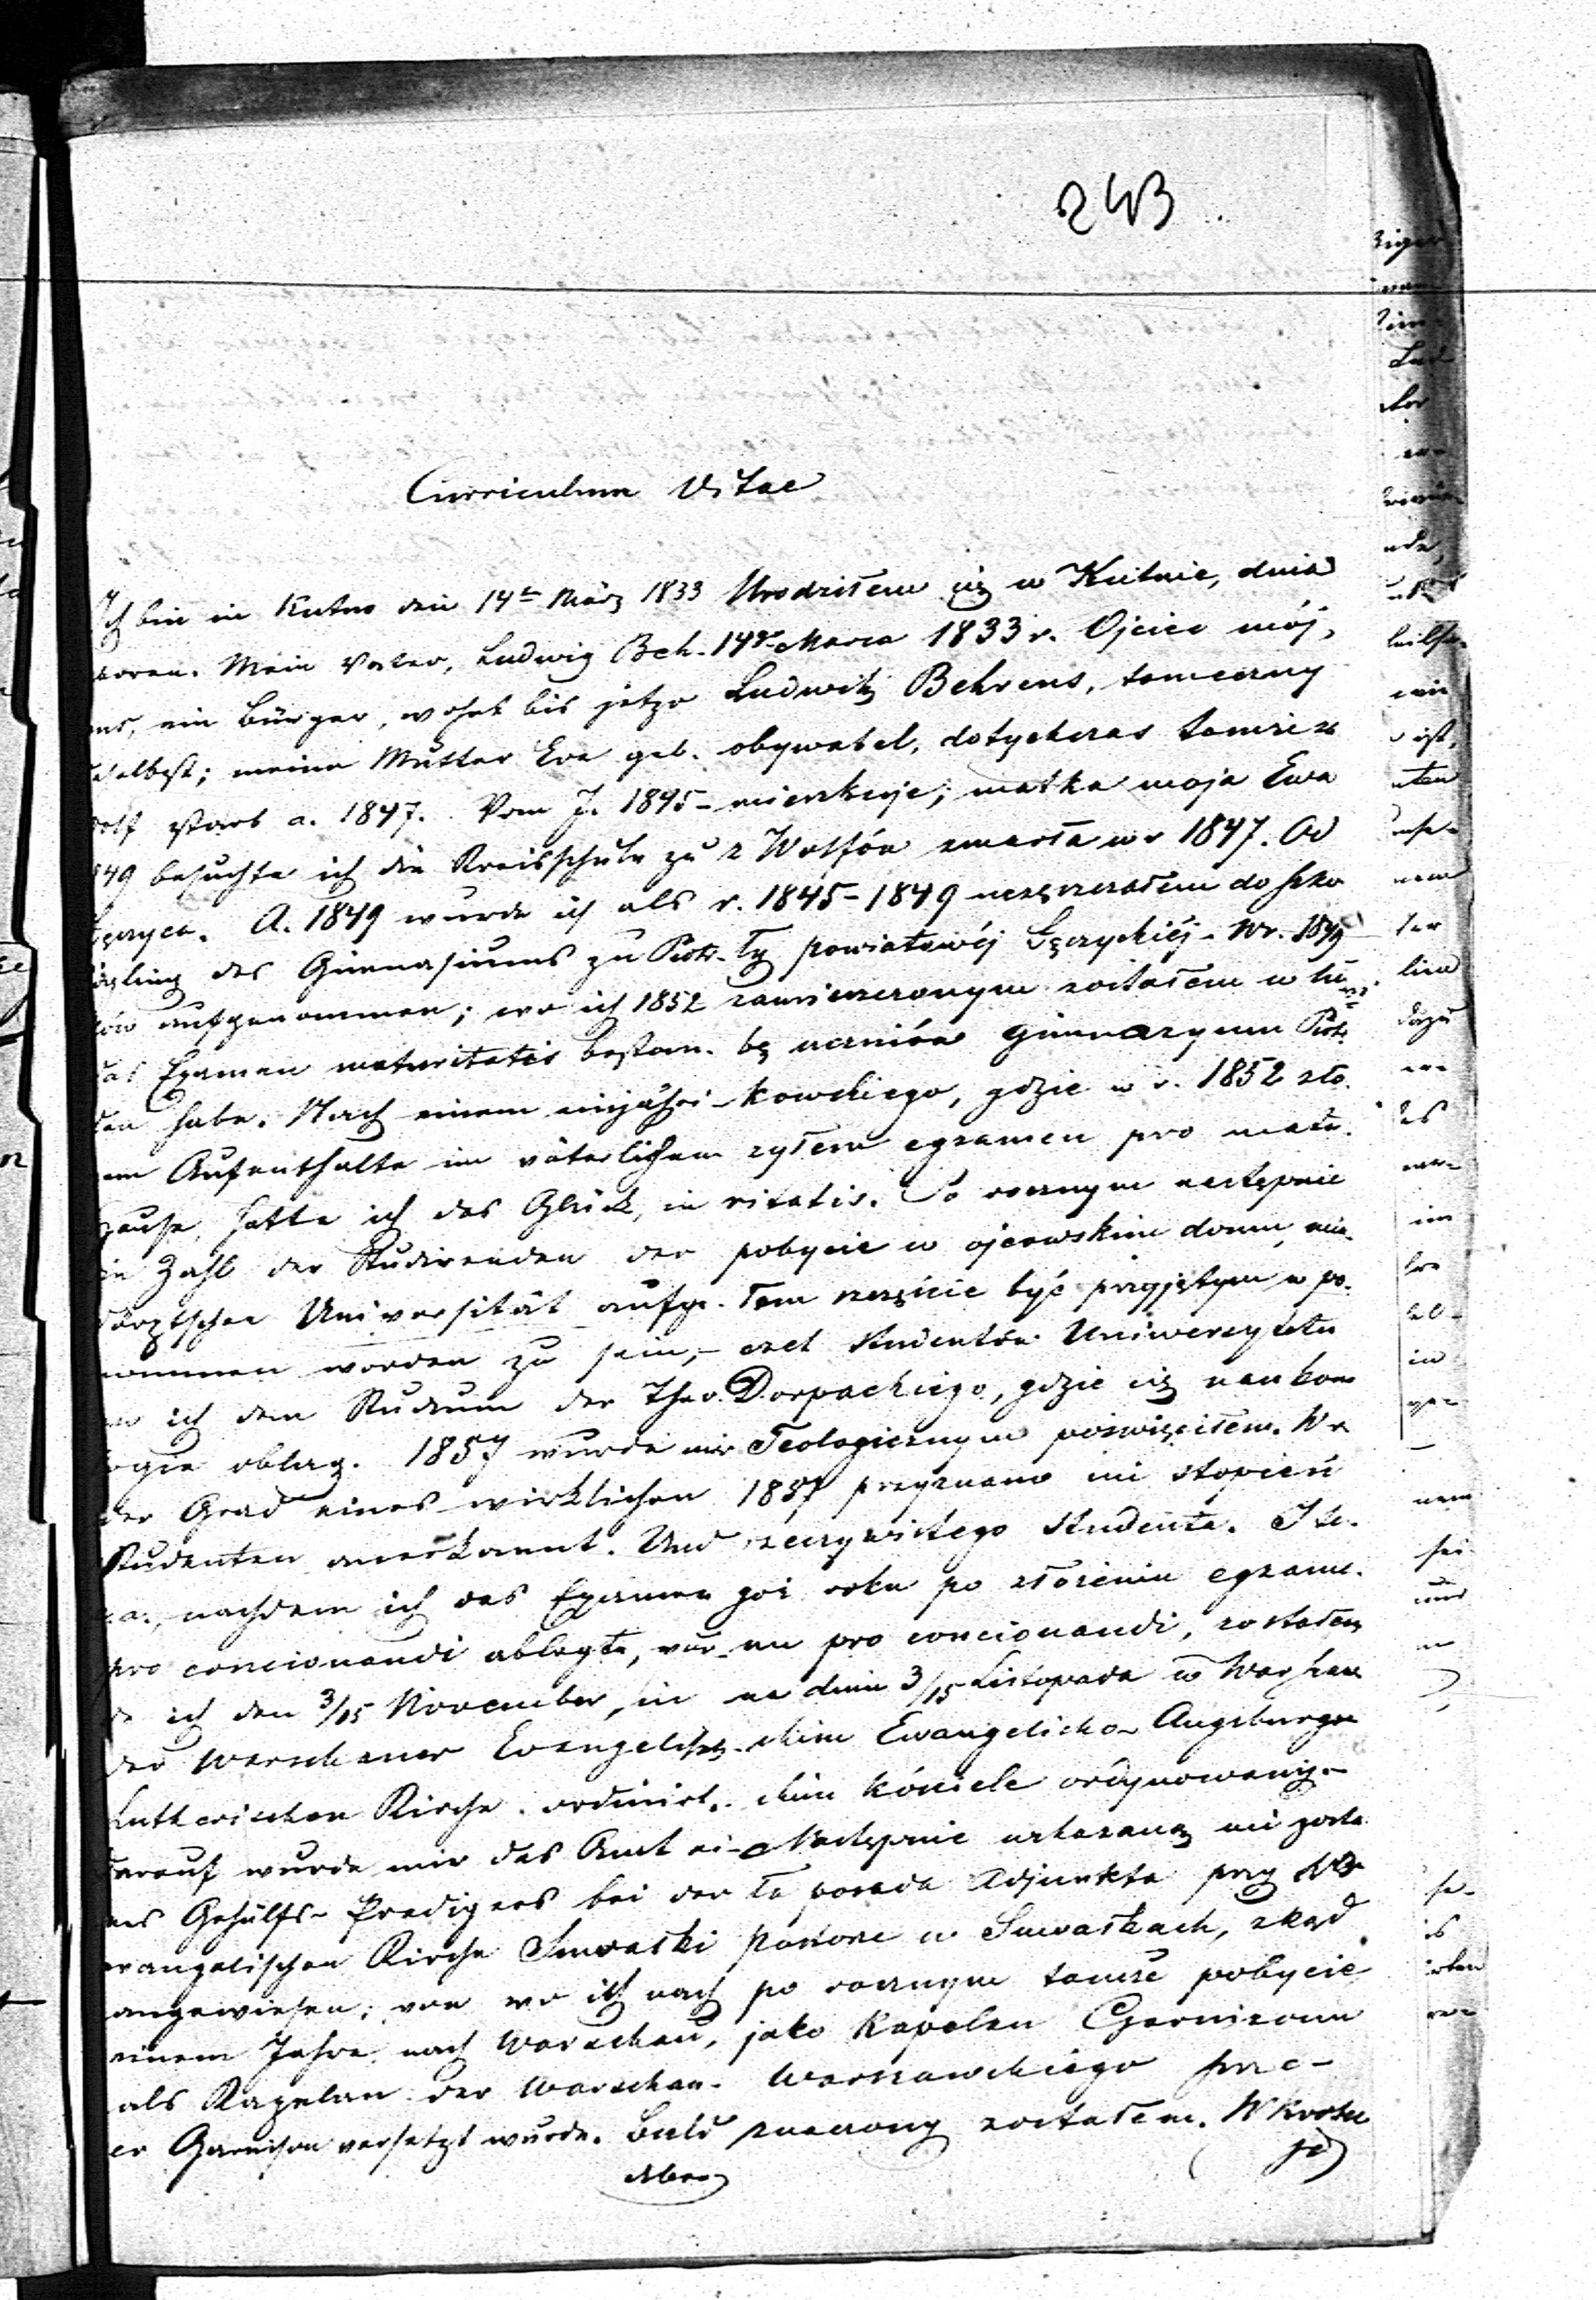 243
Curriculum Vitae
Ich bin in Kutno den 14t März 1833
boren. Mein Vater, Ludwig Beh-
ens, ein Bürger, wohnt bis jetzo
daselbst; meine Mutter Eva geb.
Wolf starb a. 1847. Vom J. 1845-
1849 besuchte ich die Kreisschule zu
Łęczyca. A. 1849 wurde ich als
ögling des Gimnasiums zu Piotr-
ków aufgenommen; wo ich 1852
das Examen maturitatis bestan-
den habe. Nach einem einjähri-
gem Aufenthalte im väterlichem
Hause, hatte ich das Glück, in
die Zahl der Studirenden der
Dorptschen Universität aufge-
nommen worden zu sein,-
wo ich dem Studium der Theo-
logie oblag. 1857 wurde mir
der Grad eines wirklichen
Studenten anerkannt. Und
z.a., nachdem ich das Examen
pro concionandi ablegte, wur-
de ich den 3/15 November, in
der Warschauer Evangelisch-
Lutherischen Kirche ordinirt.
Darauf wurde mir das Amt ei-
nes Gehülfs-Predigers bei der
evangelischen Kirche Suwałki
angewiesen; von wo ich nach
einem Jahre nach Warschau,
als Kapelan der Warschau-
er Garnison versetzt wurde. Bald
Urodziłem się w Kutnie, dnia
14go Marca 1833 r. Ojciec mój,
Ludwik Behrens, tameczny
obywatel, dotychczas tamże za
mieszkuje; matka moja Ewa
z Wolfów zmarła w r 1847. Od
r. 1845-1849 uczęszczałem do szko
ły powiatowéj Łęczyckiéj. W r. 1849
zamieszczonym zostałem w licz
bę uczniów gimnazyum Piotr
kowskiego, gdzie w r. 1852 zło.
żyłem egzamen pro matu.
ritatis. Po rocznym następnie
pobycie w ojcowskim domu, mia.
łem szczęście być przyjętym w po.
czet studentów Uniwersytetu
Dorpackiego, gdzie się naukom
Teologicznym poświęciłem. W r
1857 przyznano mi stopień
rzeczywistego studenta. I te.
goż roku po złożeniu egzame.
nu pro concionandi, zostałem
na dniu 3/15 Listopada w Warszaw
skim Ewangelicko-Augsburgs
kim kościele ordynowany.
Następnie wskazaną mi zosta
ła posada Adjunkta przy
Pastorze w Suwałkach, zkąd
po rocznym tamże pobycie
jako Kapelan Garnizonu
Warszawskiego prze-
znaczony zostałem. Wkrotce